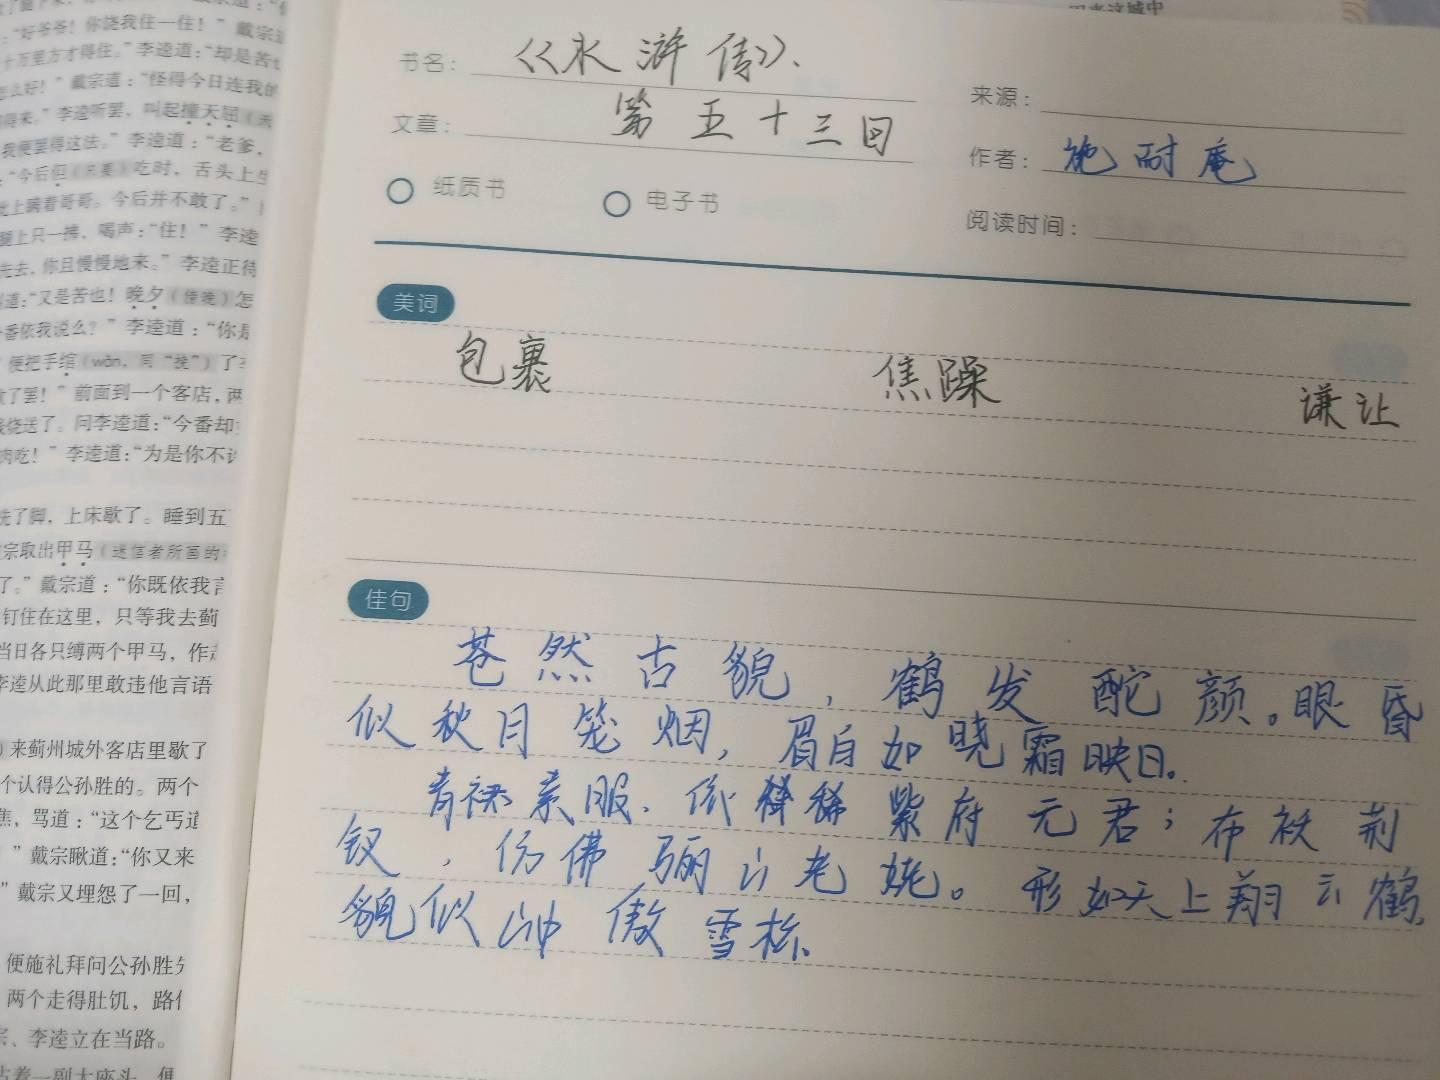 ：“好爷爷！你饶我住一住！”戴宗
十万里方才得住。”李逵道：“却是苦
怎么好！”戴宗道：“怪得今日连我的
得来。”李逵听罢，叫起撞天屈
我便罢得这法。”李逵道：“老爹，
“今后但（只要）吃时，舌头上生
就上瞒着哥哥。今后并不敢了。”
腿上只一拂，喝声：“住！”李逵
先去，你且慢慢地来。”李逵正待
道：“又是苦也！晚夕（傍晚）怎
番依我说么？”李逵道：“你是
便把手绾（wǎn，同“挽”）了
了罢！”前面到一个客店，两
烧送了。问李逵道：“今番却
肉吃！”李逵道：“为是你不
洗了脚，上床歇了。睡到五
宗取出甲马（迷信者所画的
了。”戴宗道：“你既依我言
钉住在这里，只等我去蓟
当日各只缚两个甲马，作
李逵从此那里敢违他言语
来蓟州城外客店里歇了
个认得公孙胜的。两个
焦，骂道：“这个乞丐道
”戴宗瞅道：“你又来
”戴宗又埋怨了一回，
便施礼拜问公孙胜
两个走得肚饥，路
、李逵立在当路。
占着一副大座头，便
书名：《水浒传》.
文章：第五十三回
纸质书 电子书
来源：
作者：施耐庵
阅读时间：
美词
包裹 焦躁 谦让
佳句
苍然古貌，鹤发酡颜。眼昏
似秋月笼烟，眉白如晓霜映日。
青裙素服，依稀紫府元君；布袄荆
钗，仿佛骊山老姥。形如天上翔云鹤，
貌似山中傲雪松。